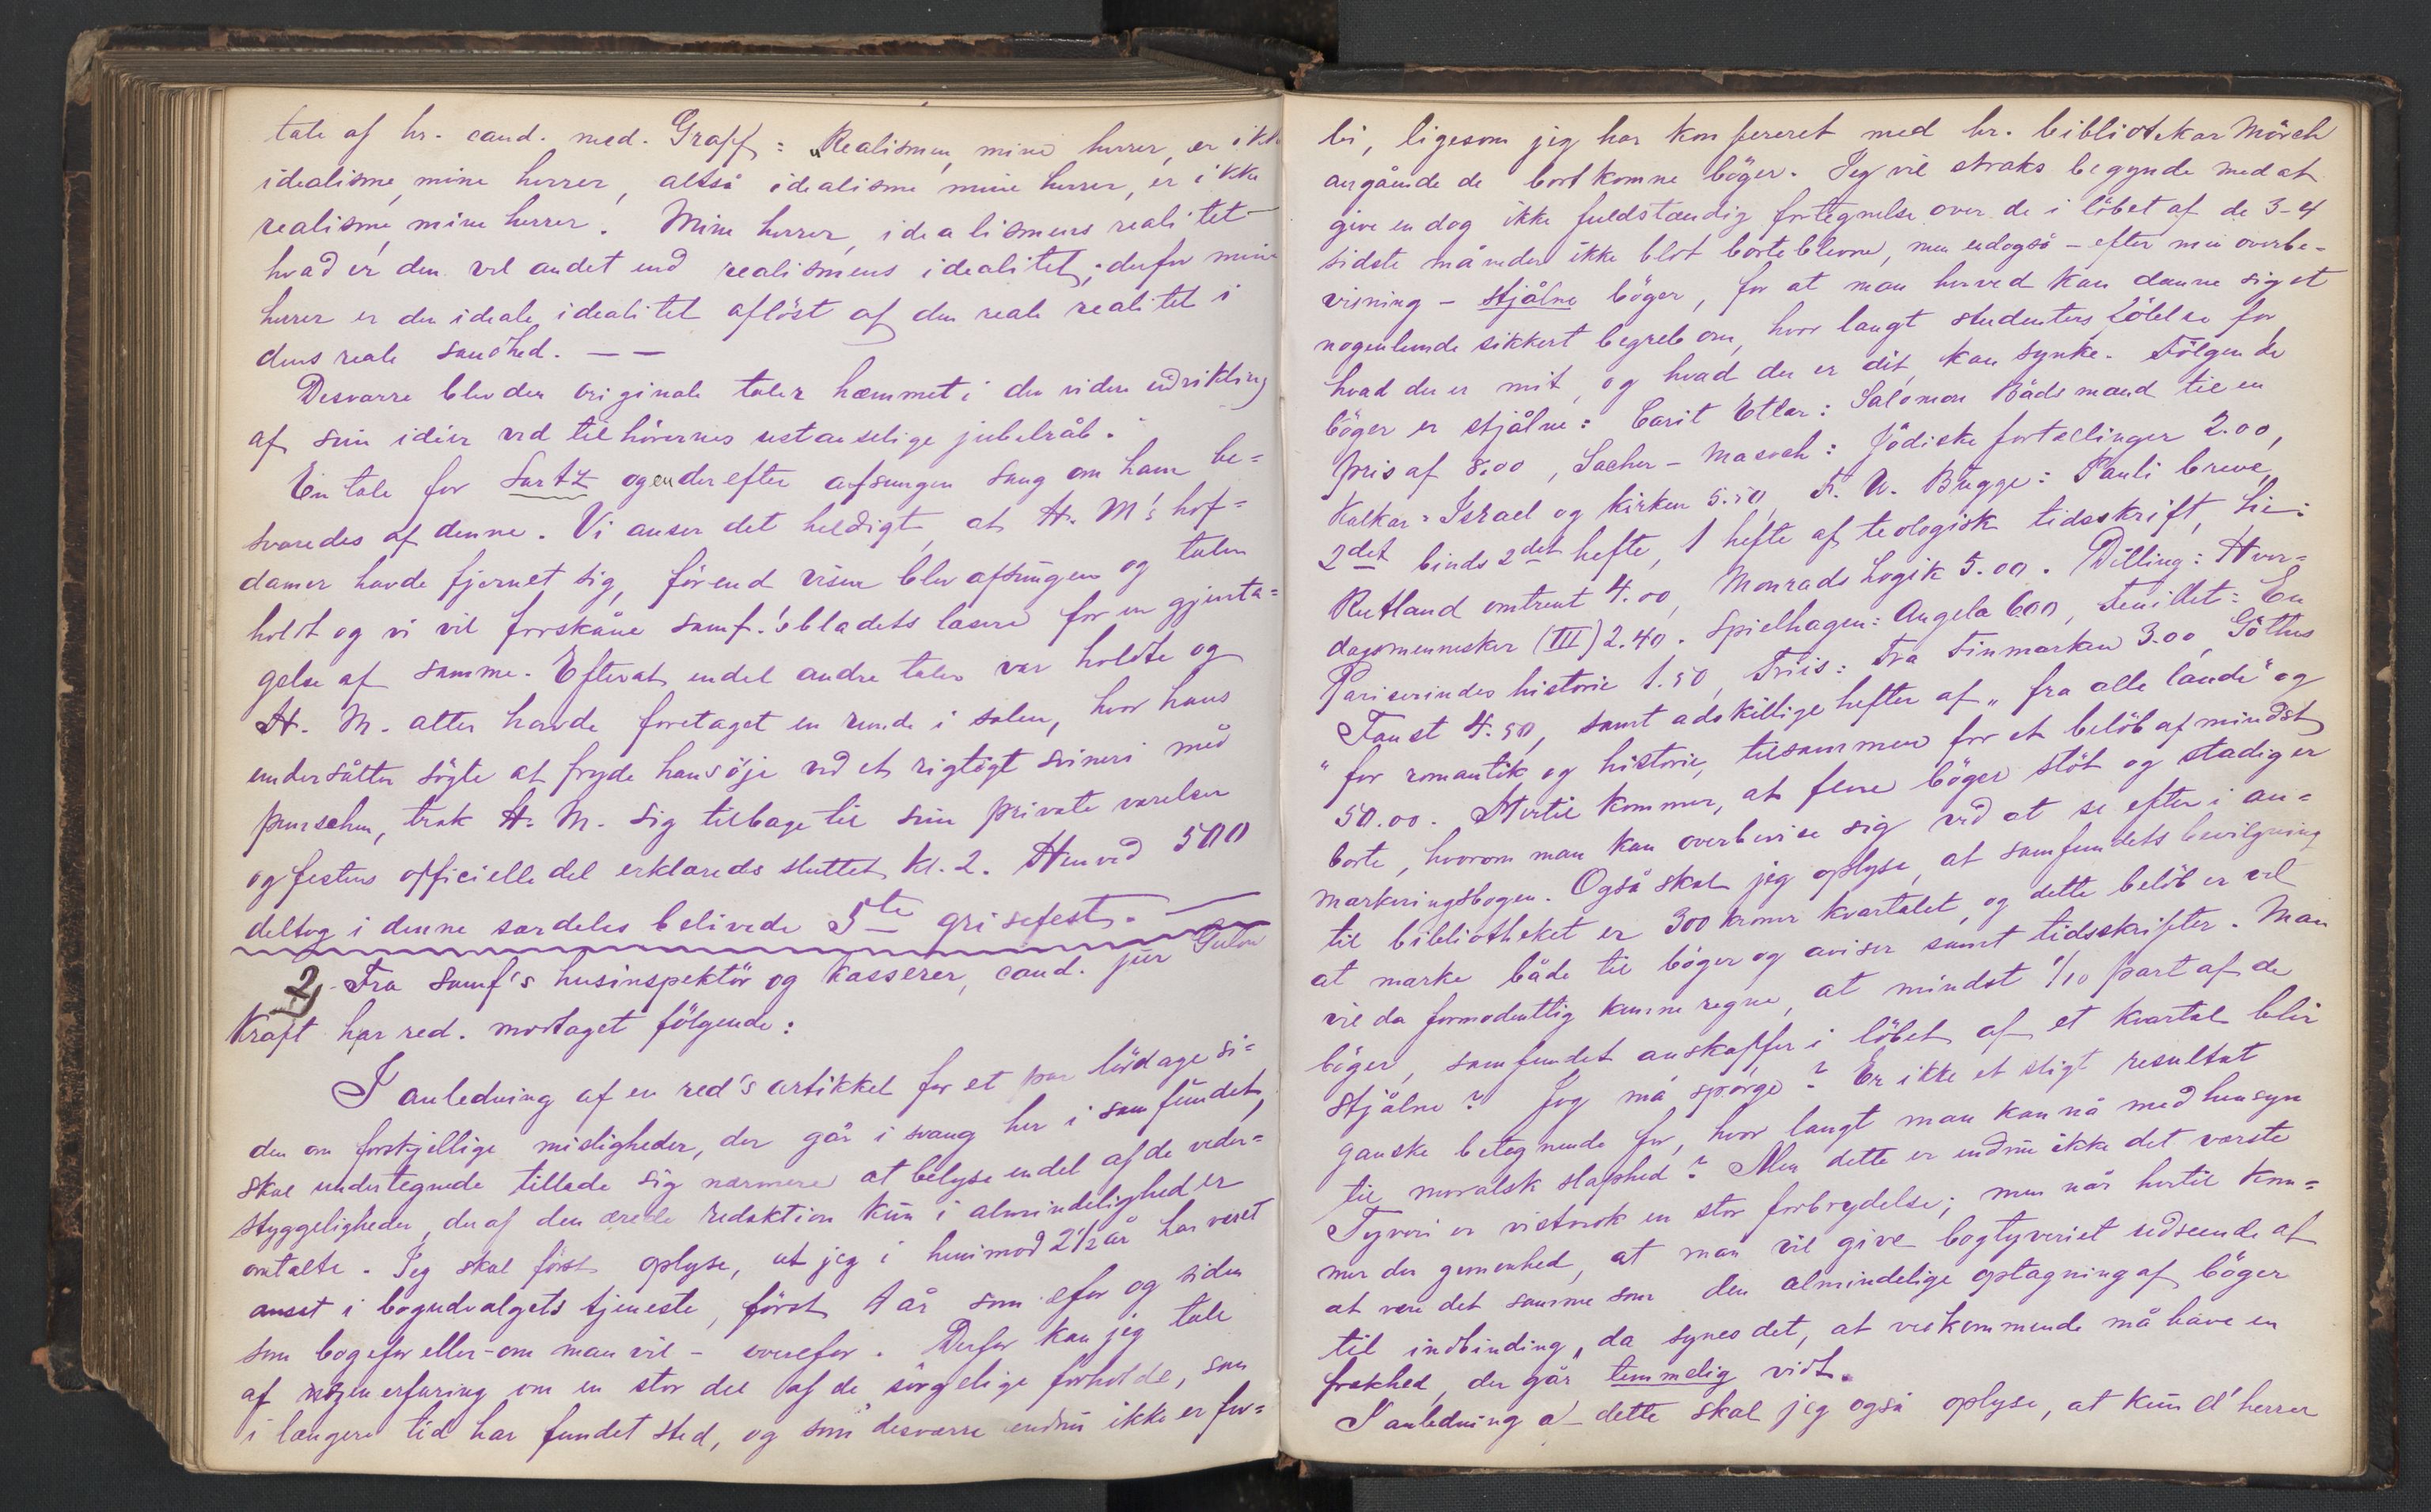 tale af hr. cand. med. Graff: „Realismen, mine herrer, er ikke
idealisme, mine herrer, altså idealisme mine herrer, er ikke
realisme, mine herrer. Mine herrer, idealismens realitet –
hvad er den vel andet end realismens idealitet; derfor mine
herrer er den ideale idealitet aflöst af den reale realitet i
dens reale sandhed. — —
Desværre blev den originale taler hæmmet i den videre udvikling
af sine idéer ved tilhörernes ustanselige jubelråb.
En tale for Sartz og en derefter afsungen sang om ham be=
svaredes af denne. Vi anser det heldigt, at H. M's hof=
damer havde fjernet sig, förend visen blev afsungen og talen
holdt og vi vil forskåne samf.'sbladets læsere for en gjenta=
gelse af samme. Efterat endel andre taler var holdte og
H. M. atter havde foretaget en runde i salen, hvor hans
undersåtter sögte at fryde hans öje ved et rigtigt svineri med
punschen, trak H. M. sig tilbage til sine private værelser
og festens officielle del erklæredes sluttet kl. 2. Henved 500
deltog i denne særdeles belivede 5te grisefest. —
2) Fra samf's husinspektör og kasserer, cand. jur Gulow
Kraft har red. modtaget fölgende:
I anledning af en red's artikkel for et par lördage si=
den om forskjellige misligheder, der går i svang her i samfundet,
skal undertegnede tillade sig nærmere at belyse endel af de veder=
styggeligheder, der af den ærede redaktion kun i almindelighed er
omtalte. Jeg skal först oplyse, at jeg i henimod 2 1/2 år har været
ansat i bogudvalgets tjeneste, först 1 år som efor og siden
som bogefor eller – om man vil – overefor. Derfor kan jeg tale
af egen erfaring om en stor del af de sörgelige forholde, som
i længere tid har fundet sted, og som desværre endnu ikke er for=
bi, ligesom jeg har konfereret med hr. bibliotekar Mörch
angående de bortkomne böger. Jeg vil straks begynde med at
give en dog ikke fuldstændig fortegnelse over de i löbet af de 3-4
sidste måneder ikke blot borteblevne, men endogså – efter min overbe=
visning – stjålne böger, for at man herved kan danne sig et
nogenlunde sikkert begreb om, hvor langt studenters fölelse for,
hvad der er mit, og hvad der er dit, kan synke. Fölgende
böger er stjålne: Carit Etlar: Salomon Bådsmand til en
pris af 8.00, Sacher-Masoch: Jödiske fortællinger 2.00,
Kalkar: Israel og kirken 5.50, F. W. Bugge: Pauli breve,
2det binds 2det hefte, 1 hefte af teologisk tidsskrift, Lie:
Rutland omtrent 4.00, Monrads Logik 5.00. Dilling: Hver=
dagsmennesker (III) 2.40. Spielhagen: Angela 6.00, Feuillet: En
Pariserindes historie 1.50, Friis: Fra Finmarken 3.00, Göthes
Faust 4.50, samt adskillige hefter af „fra alle lande" og
"for romantik og historie, tilsammen for et belöb af mindst
50.00. Hertil kommer, at flere böger stöt og stadig er
borte, hvorom man kan overbevise sig ved at se efter i an=
markeringsbogen. Også skal jeg oplyse, at samfundets bevilgning
til bibliotheket er 300 kroner kvartalet, og dette belöb er vel
at mærke både til böger og aviser samt tidsskrifter. Man
vil da formodentlig kunne regne, at mindst 1/10 part af de
böger, samfundet anskaffer i löbet af et kvartal blir
stjålne? Jeg må spörge? Er ikke et sligt resultat
ganske betegnende for, hvor langt man kan nå med hensyn
til moralsk slaphed? Men dette er endnu ikke det værste
Tyveri er vistnok en stor forbrydelse; men når hertil kom=
mer den gemenhed, at man vil give bogtyveriet udseende af
at være det samme som den almindelige optagning af böger
til indbinding, da synes det, at vedkommende må have en
frækhed, der går temmelig vidt.
I anledning af dette skal jeg også oplyse, at kun d'herrer